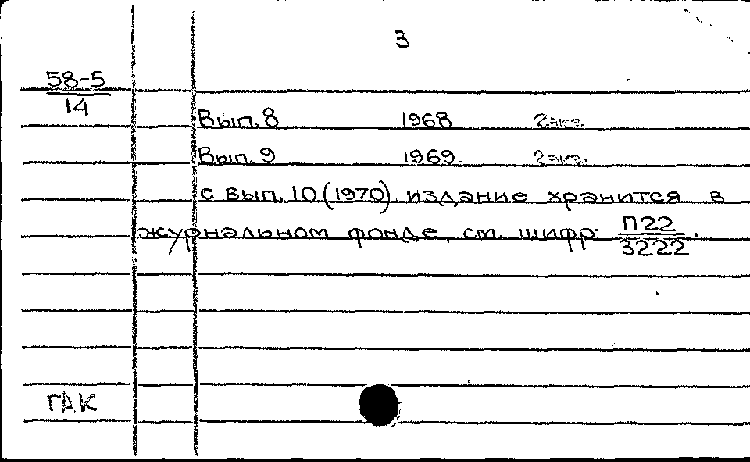 3
58-5
14
Вып. 8 1968 2 экз.
Вып. 9 1969 2 экз.
с вып. 10 (1970) издание хранится в
журнальном фонде, см. шифр П22
3222.
ГАК